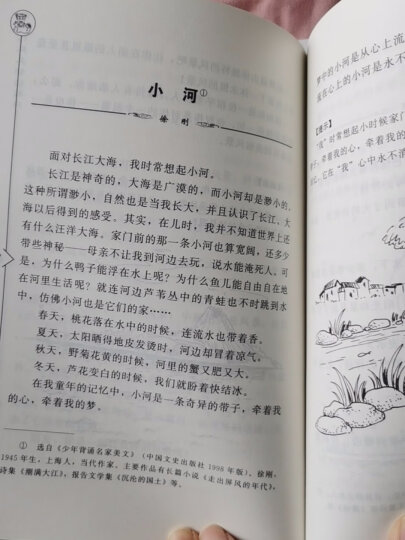 小 河①
徐 刚
面对长江大海，我时常想起小河。
长江是神奇的，大海是广漠的，而小河却是渺小的。
这种所谓渺小，自然也是当我长大，并且认识了长江、大
海以后得到的感受。其实，在儿时，我并不知道世界上还
有什么汪洋大海。家门前的那一条小河也算宽阔，还多少
带些神秘——母亲不让我到河边去玩，说水能淹死人。可
是，为什么鸭子能浮在水上呢？为什么鱼儿能自由自在地
在河里生活呢？就连河边芦苇丛中的青蛙也不时跳到水
中，仿佛小河也是它们的家……
春天，桃花落在水中的时候，连流水也带着香。
夏天，太阳晒得地皮发烫时，河边却冒着凉气。
秋天，野菊花黄的时候，河里的蟹又肥又大。
冬天，芦花变白的时候，我们就盼着快结冰。
在我童年的记忆中，小河是一条奇异的带子，牵着我
的心，牵着我的梦。
① 选自《少年背诵名家美文》（中国文史出版社 1998 年版）。徐刚，
1945 年生，上海人，当代作家。主要作品有长篇小说《走出屏风的年代》，
诗集《潮满大江》，报告文学集《沉沦的国土》等。
中的小河是从心上流
在心上的小河是永不
【提示】
“我”时常想起小时候家门
子，牵着我的心，牵着我
，它在“我”心中永不消